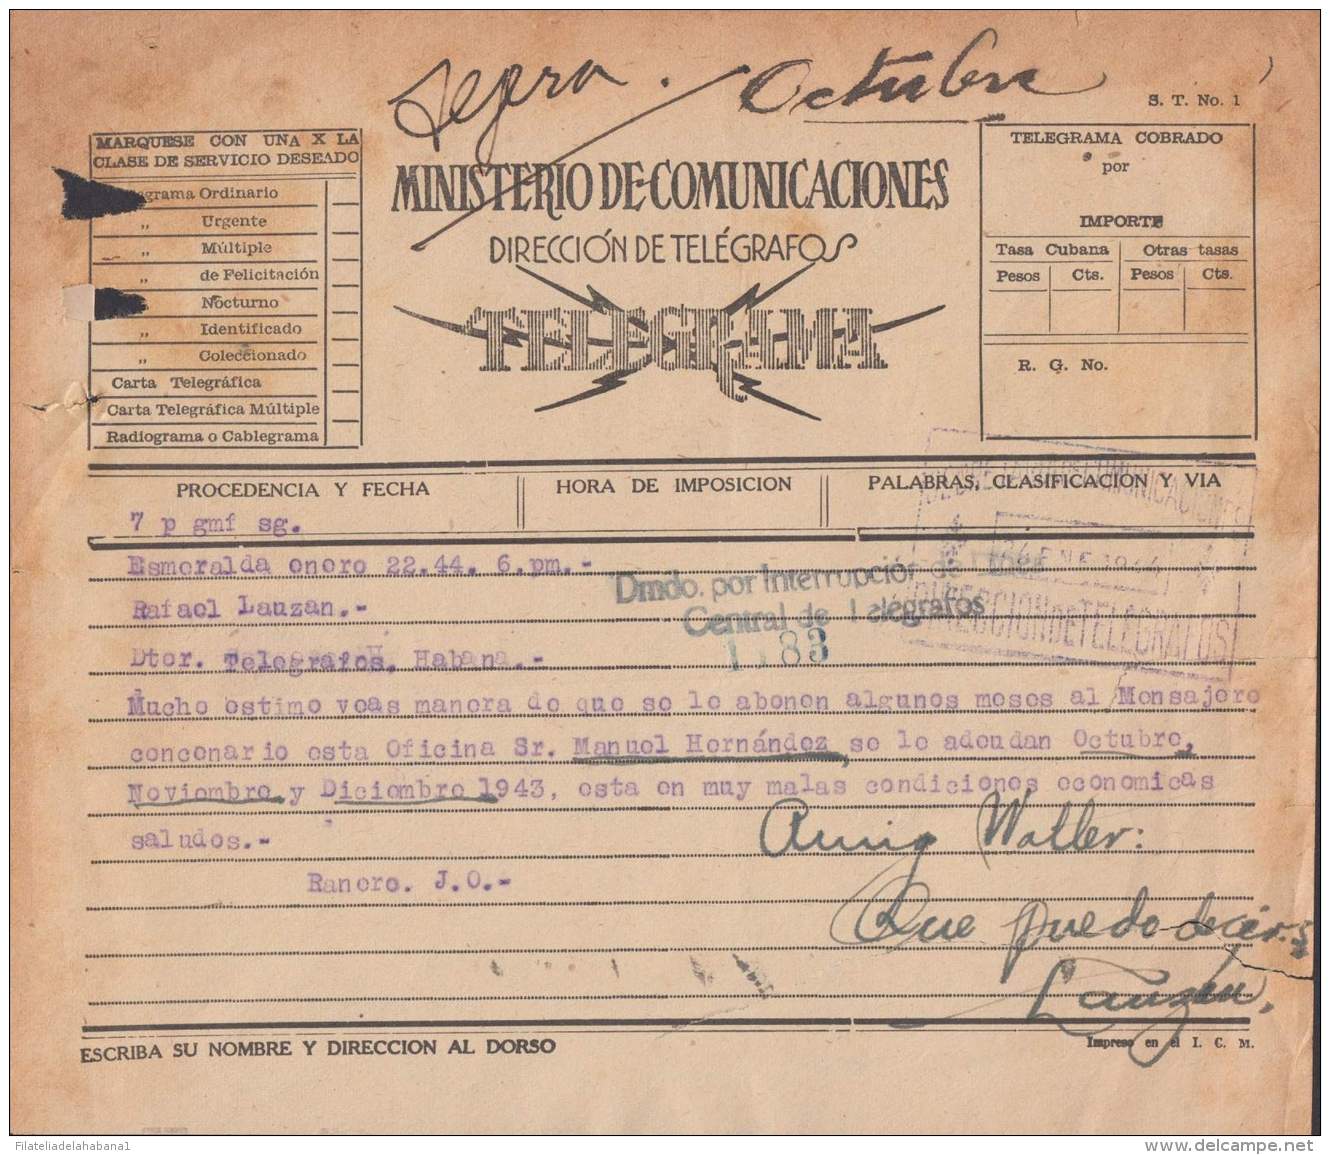 Octubre
S. T. No. 1
MARQUESE CON UNA X LA
CLASE DE SERVICIO DESEADO
grama Ordinario
„ Urgente
„ Múltiple
„ de Felicitación
Nocturno
„ Identificado
„ Coleccionado
Carta Telegráfica
Carta Telegráfica Múltiple
Radiograma o Cablegrama
MINISTERIO DE COMUNICACIONES
DIRECCIÓN DE TELÉGRAFOS
TELEGRAMA
TELEGRAMA COBRADO
por
IMPORTE
Tasa Cubana Otras tasas
Pesos Cts. Pesos Cts.
R. G. No.
PROCEDENCIA Y FECHA HORA DE IMPOSICION PALABRAS, CLASIFICACION Y VIA
7 p gmf sg.
Esmeralda enero 22.44. 6.pm.-
Rafael Lauzan.-
Dtor. Telegrafos. Habana.-
Mucho estimo veas manera de que se le abonen algunos meses al Mensajero
concenario esta Oficina Sr. Manuel Hernández, se le adeudan Octubre,
Noviembre y Diciembre 1943, esta en muy malas condiciones economicas
saludos.-
Ranero. J.O.-
Dmdo. por Interrupción de
Central de Telégrafos
COMUNICACIONES
ENE 1944
DIRECCION DE TELEGRAFOS
Amigo Waller:
Que puedo decir.
Lauzán,
ESCRIBA SU NOMBRE Y DIRECCION AL DORSO
Impreso en el I. C. M.
Filateliadelahabana1
delcampe.net